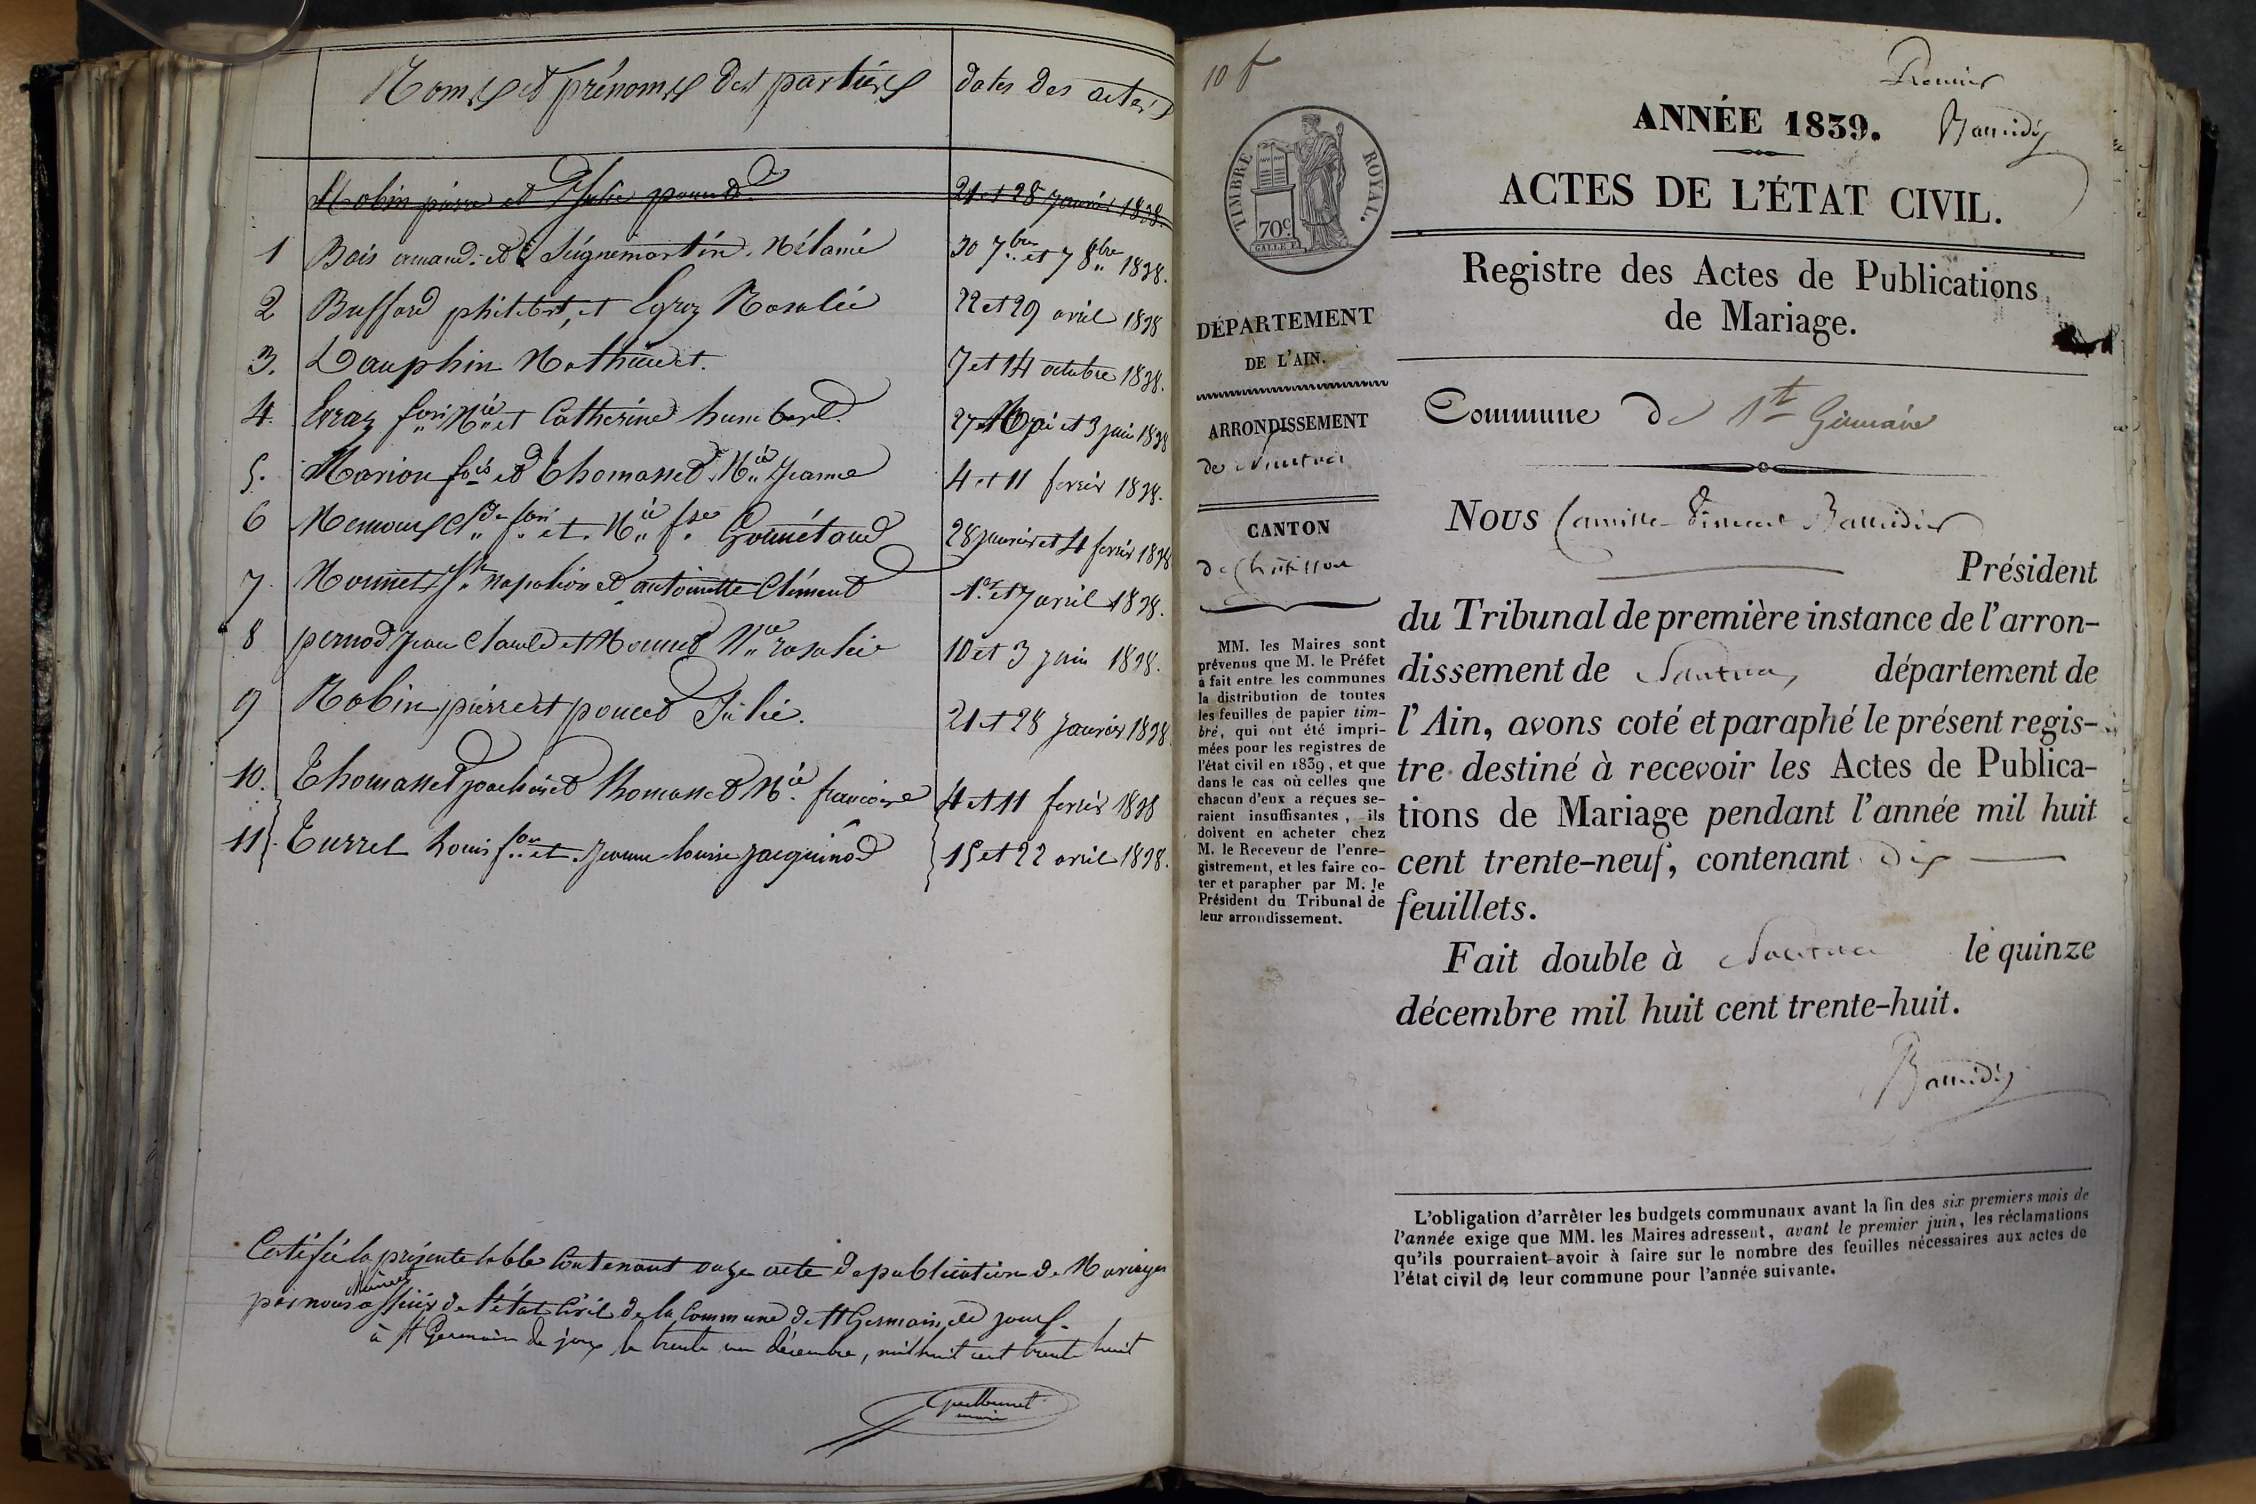 Noms et prénoms des parties
dates des actes
Robin pierre et Julie poncet
21 et 28 janvier 1838.
1 Bois armand et Seignemartin Mélanie
30 7bre et 7 8bre 1838.
2 Buffard philibert, et Egraz Rosalie
22 et 29 avril 1838
3. Dauphin Mathieu et.
7 et 14 octobre 1838.
4. Egraz et Catherine humbert.
27 Mai et 3 juin 1838
5. Marion fois et Thomasset Mie Jeanne
4 et 11 fevrier 1838.
6 et Mie fse
28 janvier et 4 fevrier 1838
7. Mounet napoléon et antoinette Clément
1er et 7 avril 1838.
8 pernod Jean Claude et Mounet Mie rosalie
10 et 3 juin 1838.
9 Robin pierre et poncet Julie.
21 et 28 Janvier 1838
10. Thomasset joachim et Thomasset Mie françoise
4 et 11 fevrier 1838
11. Turrel Louis et Jeanne louise jacquinod
15 et 22 avril 1838.
Certifié la présente table Contenant onze acte de publication de Mariages
par nous Maire officier de l'état Civil de la Commune de St Germain de joux.
à St Germain de joux le trente un décembre, mil huit cent trente huit
maire
10 f
Premier
ANNÉE 1839.
ACTES DE L'ÉTAT CIVIL.
TIMBRE ROYAL.
70c.
Registre des Actes de Publications
de Mariage.
DÉPARTEMENT
DE L'AIN.
ARRONDISSEMENT
de Nantua
CANTON
de Châtillon
MM. les Maires sont
prévenus que M. le Préfet
a fait entre les communes
la distribution de toutes
les feuilles de papier tim-
bré, qui ont été impri-
mées pour les registres de
l'état civil en 1839, et que
dans le cas où celles que
chacun d'eux a reçues se-
raient insuffisantes, ils
doivent en acheter chez
M. le Receveur de l'enre-
gistrement, et les faire co-
ter et parapher par M. le
Président du Tribunal de
leur arrondissement.
Commune de St Germain
Nous Camille Vincent
Président
du Tribunal de première instance de l'arron-
dissement de Nantua, département de
l'Ain, avons coté et paraphé le présent regis-
tre destiné à recevoir les Actes de Publica-
tions de Mariage pendant l'année mil huit
cent trente-neuf, contenant dix
feuillets.
Fait double à Nantua le quinze
décembre mil huit cent trente-huit.
L'obligation d'arrêter les budgets communaux avant la fin des six premiers mois de
l'année exige que MM. les Maires adressent, avant le premier juin, les réclamations
qu'ils pourraient avoir à faire sur le nombre des feuilles nécessaires aux actes de
l'état civil de leur commune pour l'année suivante.